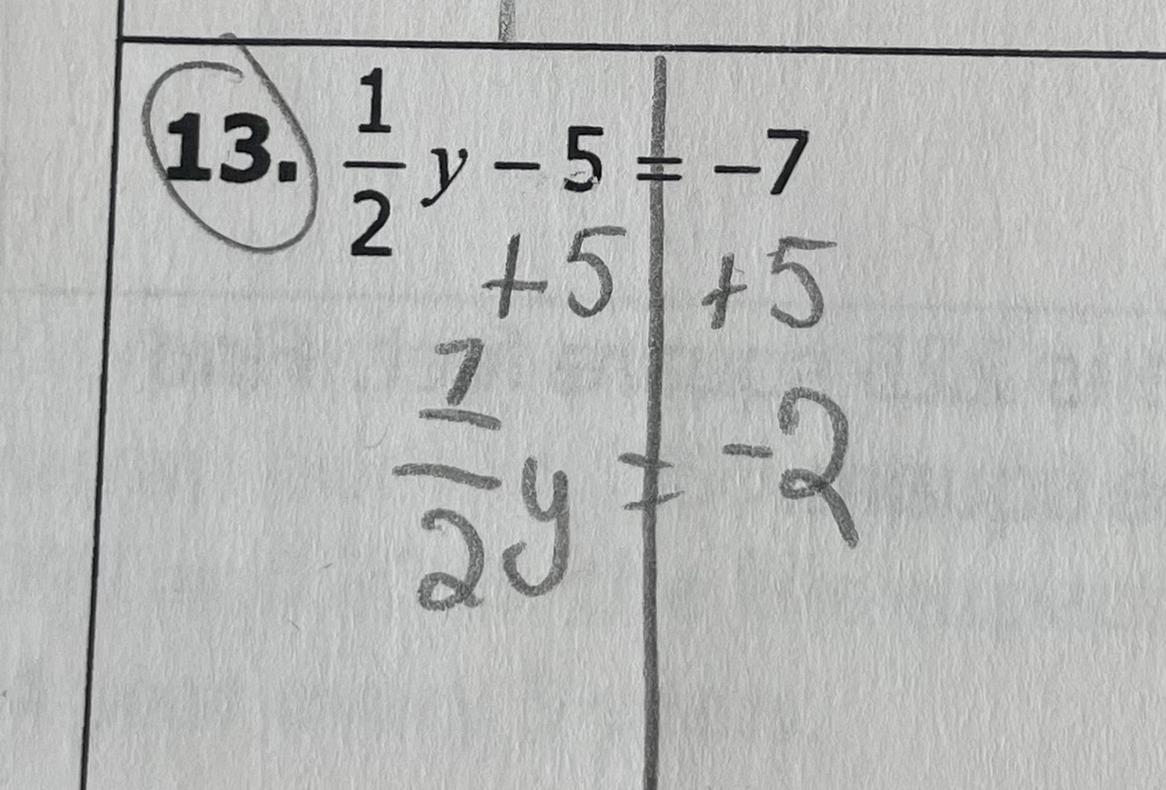 13. 1/2 y − 5 = −7
+5 +5
1/2 y = -2